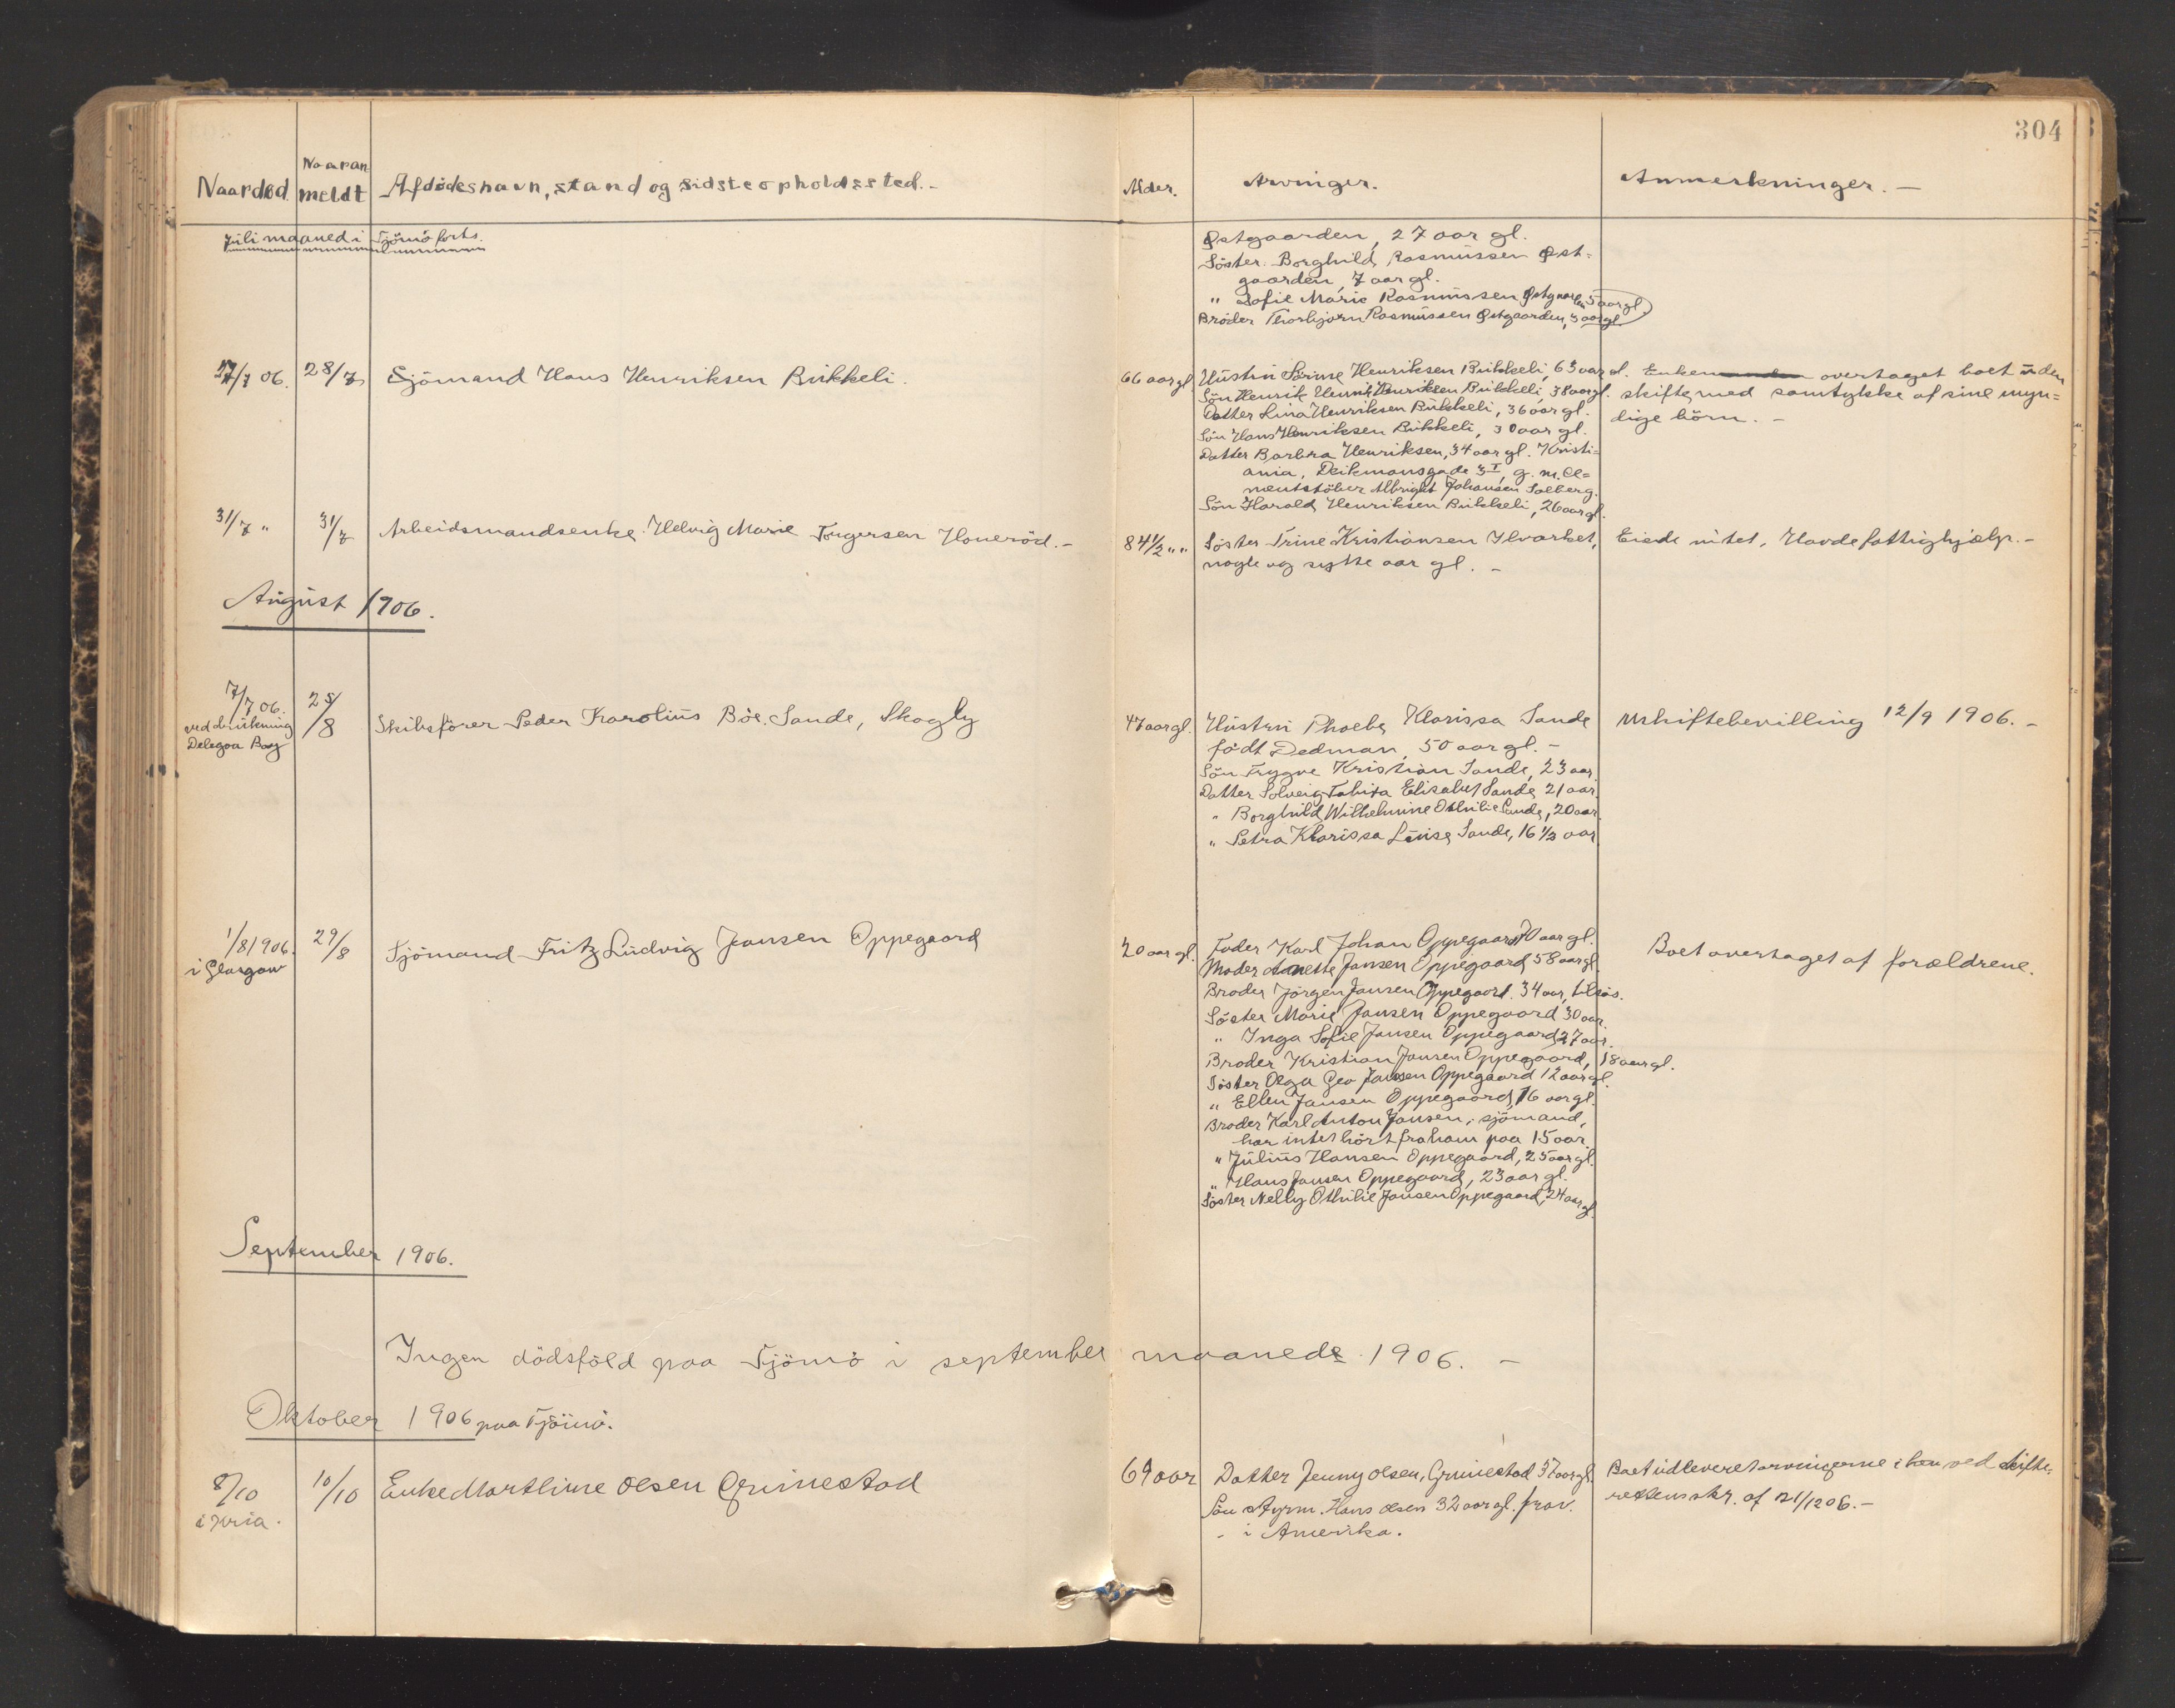 304
Naar død. Naar an meldt Afdødes navn, stand og sidste opholdssted.- Alder. Arvinger. Anmerkninger. —
Juli maaned i Tjömö forts.
Østgaarden, 27 aar gl.
Söster Borghild Rasmussen Øst=
gaarden, 7 aar gl.
" Sofie Marie Rasmussen Østgaarden 5 aar gl.
Broder Thorbjørn Rasmussen Østgaarden, 3 aar gl.
27/7 06. 28/7 Sjömand Hans Henriksen Bukkeli. 66 aar gl
Hustru Sorine Henriksen Bukkeli, 63 aar gl.
Sön Henrik Henriksen Bukkeli, 38 aar gl.
Datter Lina Henriksen Bukkeli, 36 aar gl.
Sön Hans Henriksen Bukkeli, 30 aar gl.
Datter Barbra Henriksen, 34 aar gl. Kristi=
ania, Deikmansgade 3 I, g. m. Ce=
mentstöber Albright Johansen Solberg.
Sön Harald Henriksen Bukkeli, 26 aar gl.
Enken overtaget boet uden
skifte med samtykke af sine myn=
dige börn. -
31/7 " 31/7 Arbeidsmandsenke Helvig Marie Torgersen Honeröd.- 84 1/2 " "
Söster Trine Kristiansen
nogle og sytti aar gl. -
Eiede intet. Havde fattighjælp.-
August 1906.
7/7 06. 25/8 Skibsförer Peder Karolius Böe Sande, Skogly 47 aar gl.
ved drukning
Delegoa Bay
Hustru Phoebe Klarissa Sande
födt Dedman, 50 aar gl. -
Sön Trygve Kristian Sande, 23 aar.
Datter Solveig Tabita Elisabet Sande, 21 aar.
" Borghild Wilhelmine Othilie Sande, 20 aar.
" Petra Klarissa Louise Sande, 16 1/2 aar
Uskiftebevilling 12/9 1906. -
1/8 1906. 29/8 Sjömand Fritz Ludvig Jansen Oppegaard 20 aar gl.
i Glasgow
Fader Karl Johan Oppegaard 70 aar gl.
Moder Anette Jansen Oppegaard 58 aar gl.
Broder Jörgen Jansen Oppegaard. 34 aar, tilsös.
Söster Marie Jansen Oppegaard 30 aar.
" Inga Sofie Jansen Oppegaard 27 aar.
Broder Kristian Jansen Oppegaard, 18 aar gl.
Söster Olga Jansen Oppegaard 12 aar gl.
" Ellen Jansen Oppegaard, 16 aar gl.
Broder Karl Anton Jansen, sjömand,
har intet hört fra ham paa 15 aar.
" Julius Hansen Oppegaard, 25 aar gl.
" Hans Jansen Oppegaard, 23 aar gl.
Söster Nelly Othilie Jansen Oppegaard, 24 aar gl.
Boet overtaget af forældrene.
September 1906.
Ingen dödsfald paa Tjömö i september maaned 1906. —
Oktober 1906 paa Tjömö.
8/10 10/10 Enke Marthine Olsen Grimestad 69 aar
Datter Jenny Olsen, Grimestad 37 aar gl.
Sön Styrm. Hans Olsen 32 aar gl. frav.
- i Amerika.
Boet udleveret arvingerne i hen ved skifte=
rettens skr. af 21/12 06.-